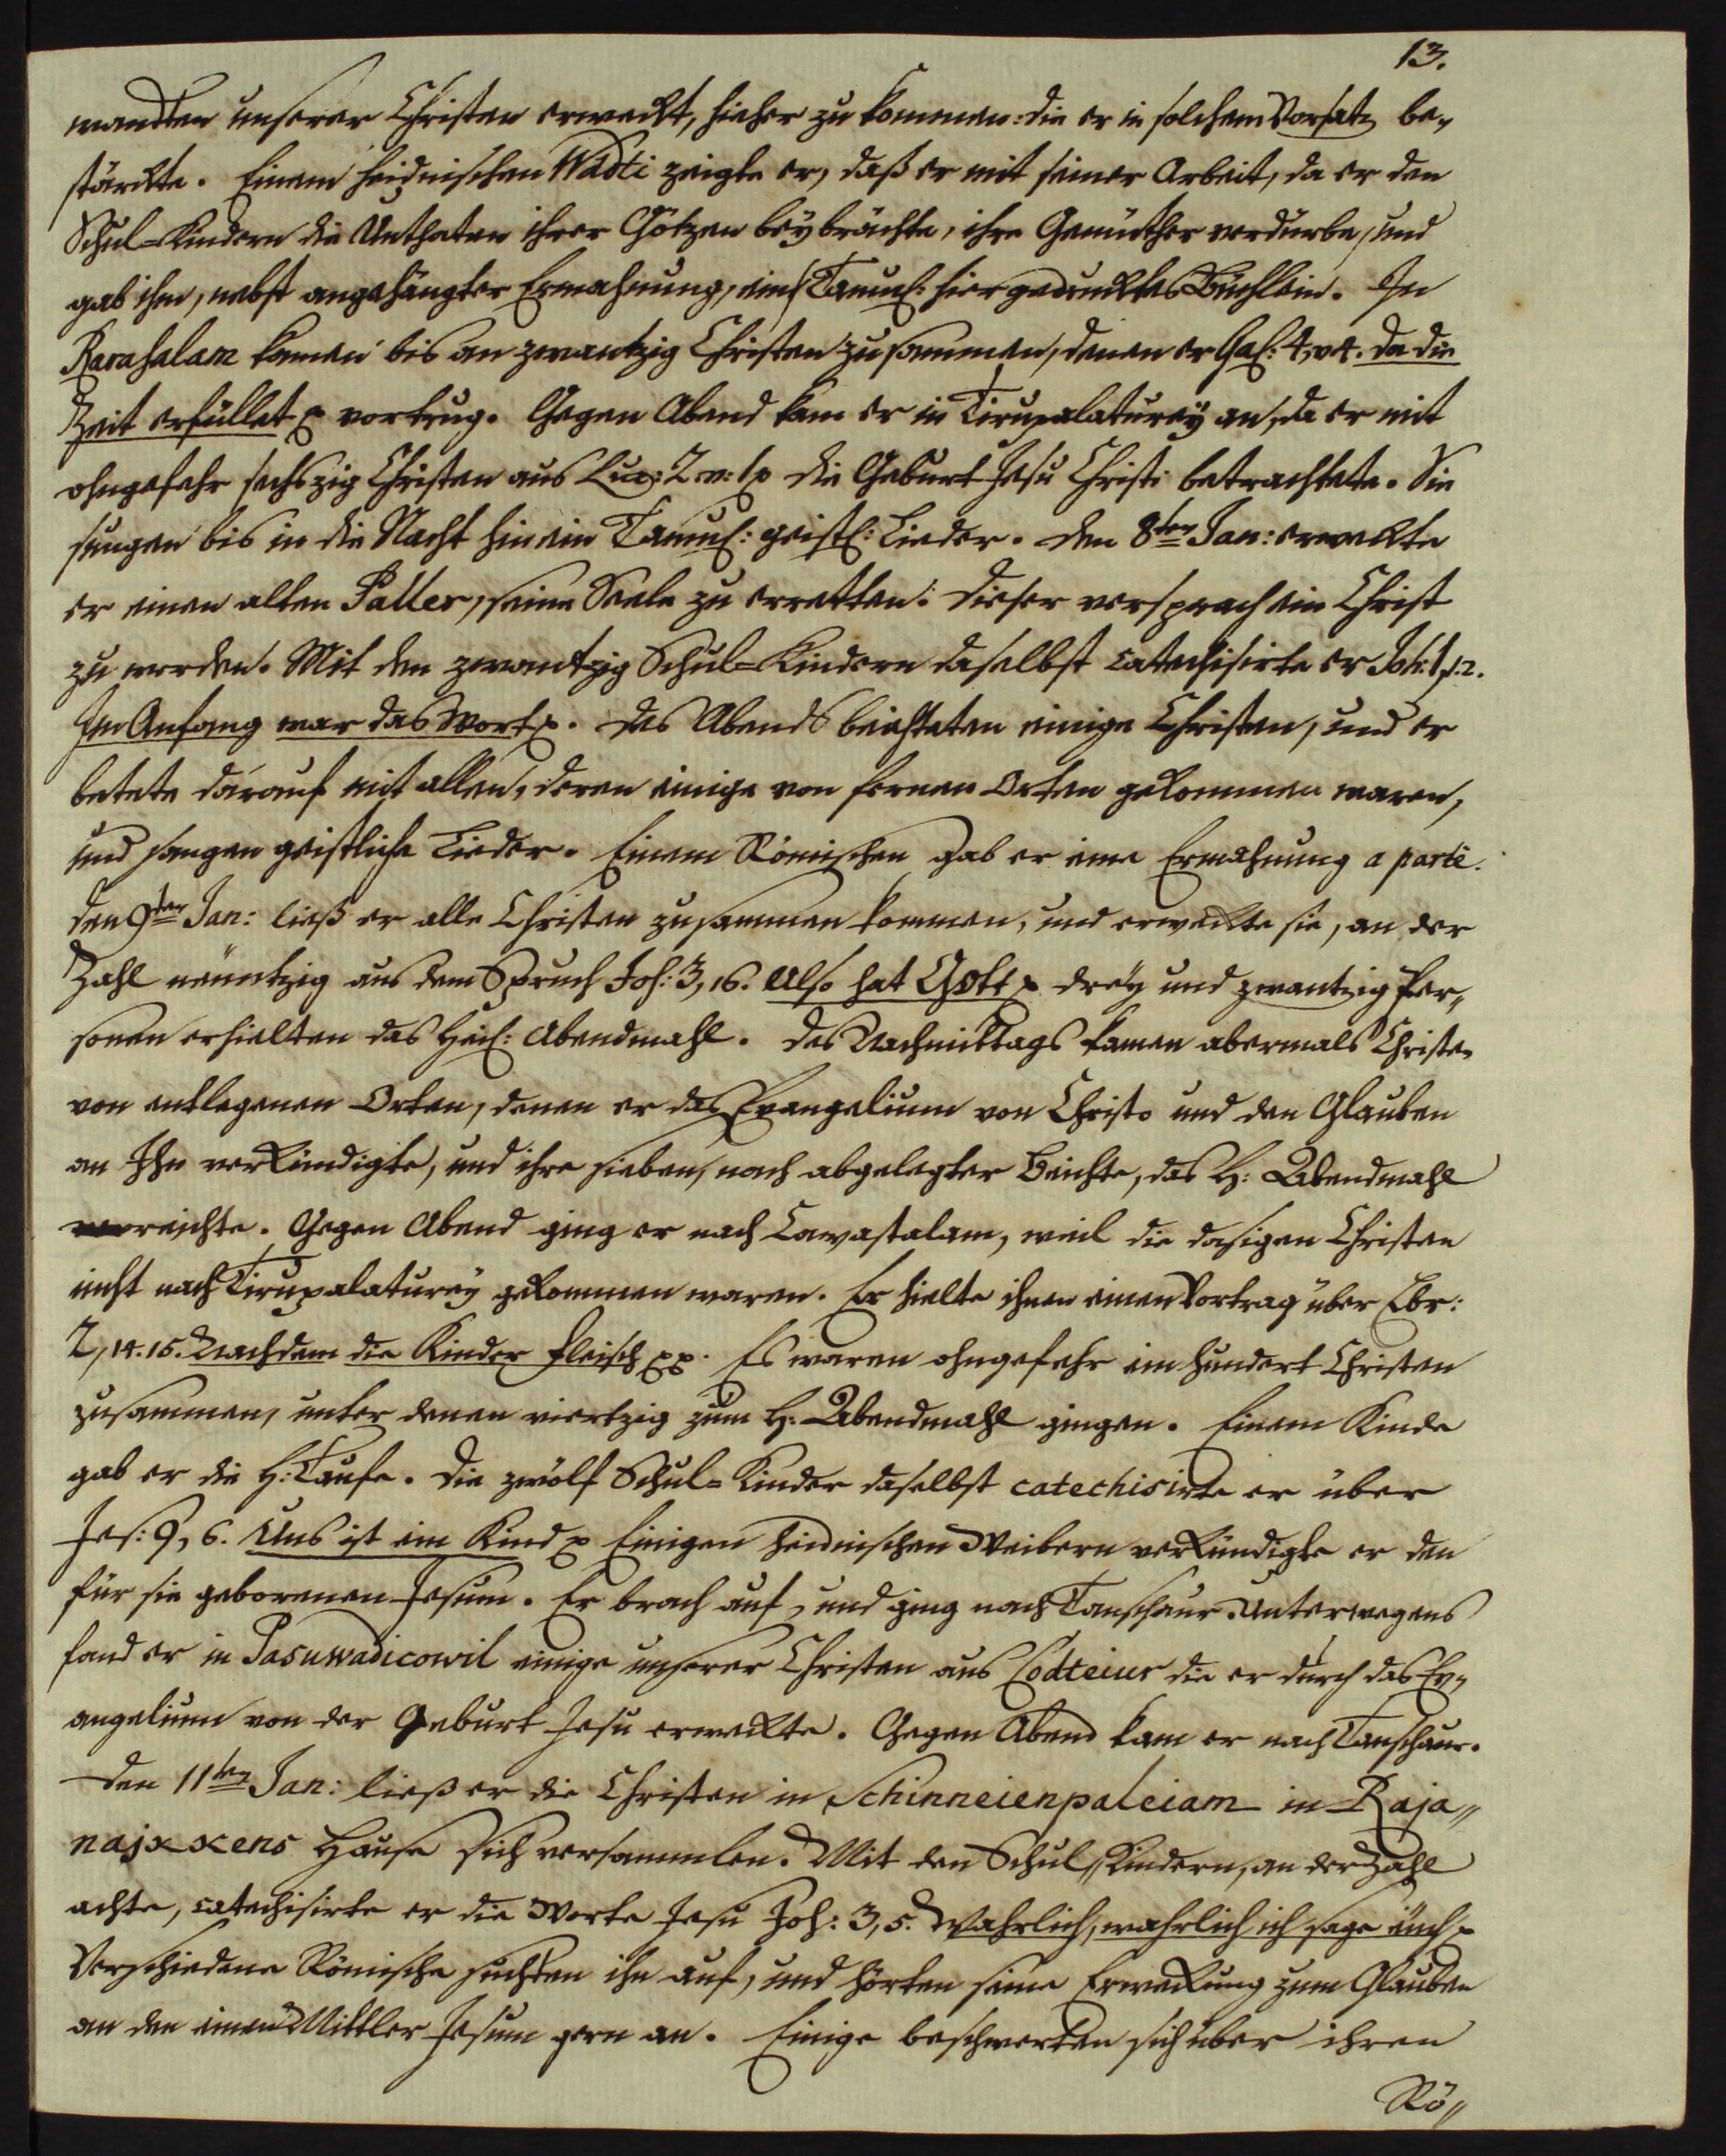 13.
wandten unserer Christen erweckt, hieher zu kommen: die er in solchem Vorsatz be„
stärckte. Einem heidnischen Wadti zeigte er, daß er mit seiner Arbeit, da er den
Schul-Kindern die Unthaten ihrer Götzen beybrächte, ihre Gemüther verdürbe, und
gab ihm, nebst angehängter Ermahnung, ein Tamul: hier gedrucktes Büchlein. In
Karahalam kamen bis an zwantzig Christen zusammen, denen er Gal: 4, v 4. da die
Zeit erfüllet p vortrug. Gegen Abend kam er in Tirupalaturey an, da er mit
ohngefehr sechszig Christen aus Luc: 2 v: 1 p die Geburt Jesu Christi betrachtete. Sie
sungen bis in die Nacht hinein Tamul: geistl: Lieder. Den 8ten Jan: erweckte
er einen alten Paller, seine Seele zu erretten: dieser versprach ein Christ
zu werden. Mit den zwantzig Schul-Kindern daselbst catechisirte er Joh: 1, 1. 2.
Im Anfang war das Wort p. Des Abends beichteten einige Christen, und er
betete darauf mit allen, deren einige von fernen Orten gekommen waren,
und sangen geistliche Lieder. Einem Römischen gab er eine Ermahnung a parte.
den 9ten Jan: ließ er alle Christen zusammen kommen, und erweckte sie, an der
Zahl neuntzig aus dem Spruch Joh: 3, 16. Also hat Gott p drey und zwantzig Per„
sonen erhielten das Heil: Abendmahl. Des Nachmittags kamen abermals Christen
von entlegenen Orten, denen er das Evangelium von Christo und den Glauben
an Ihn verkündigte, und ihre sieben, nach abgelegter Beichte, das H: Abendmahl
reichte. Gegen Abend ging er nach Cawastalam, weil die dasigen Christen
nicht nach Tirupalaturey gekommen waren. Er hielte ihnen einen Vortrag über Ebr:
2, 14. 15. Nachdem die Kinder Fleisch pp. Es waren ohngefehr ein hundert Christen
zusammen, unter denen viertzig zum H: Abendmahl gingen. Einem Kinde
gab er die H: Taufe. Die zwölf Schul-Kinder daselbst catechisirte er über
Jes: 9, 6. Uns ist ein Kind p Einigen heidnischen Weibern verkündigte er den
für sie geborenen Jesum. Er brach auf, und ging nach Tanschaur. Unterwegens
fand er in Pasuwadicowil einige unserer Christen aus Codteiur die er durch das Ev„
angelium von der Geburt Jesu erweckte. Gegen Abend kam er nach Tanschaur.
Den 11ten Jan: ließ er die Christen in Schinneienpaleiam in Raja„
najxxens Hause sich versammlen. Mit den Schul„Kindern, an der Zahl
achte, catechisirte er die Worte Jesu Joh: 3, 5. Wahrlich, wahrlich ich sage euch p
Verschiedene Römische suchten ihn auf, und hörten seine Erweckung zum Glauben
an den einen Mittler Jesum gern an. Einige beschwerten sich über ihren
Rö„